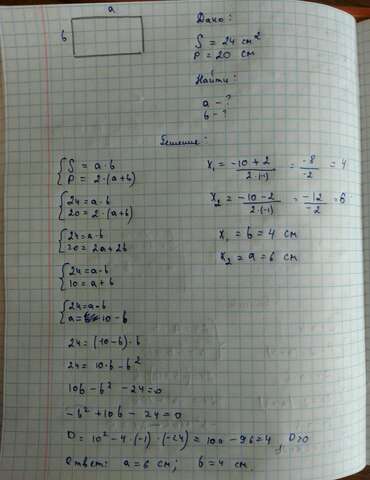 a
b
Дано:
S = 24 см²
P = 20 см
Найти:
a - ?
b - ?
Решение:
S = a·b
P = 2·(a+b)
24 = a·b
20 = 2·(a+b)
24 = a·b
20 = 2a+2b
24 = a·b
10 = a+b
24 = a·b
a = 10 - b
24 = (10-b)·b
24 = 10·b - b²
10b - b² - 24 = 0
-b² + 10b - 24 = 0
D = 10² - 4·(-1)·(-24) = 100 - 96 = 4, D>0
x₁ = -10+2 / 2·(-1) = -8 / -2 = 4
x₂ = -10-2 / 2·(-1) = -12 / -2 = 6
x₁ = b = 4 см
x₂ = a = 6 см
Ответ: a = 6 см; b = 4 см.